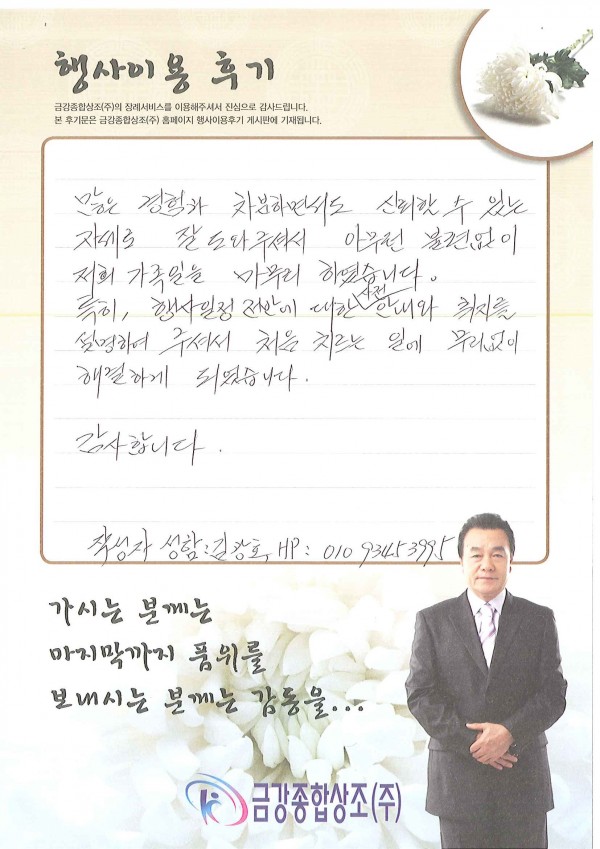 행사이용 후기
금강종합상조(주)의 장례서비스를 이용해주셔서 진심으로 감사드립니다.
본 후기문은 금강종합상조(주) 홈페이지 행사이용후기 게시판에 기재됩니다.
많은 경험과 차분하면서도 신뢰할 수 있는
자세로 잘 도와주셔서 아무런 불편없이
저희 가족일을 마무리 하였습니다.
특히, 행사일정 전반에 대한 사전 안내와 취지를
설명하여 주셔서 처음 치르는 일에 무리없이
해결하게 되었습니다.
감사합니다.
작성자 성함: 김광호 HP: 010 9345 3995
가시는 분께는
마지막까지 품위를
보내시는 분께는 감동을...
금강종합상조(주)